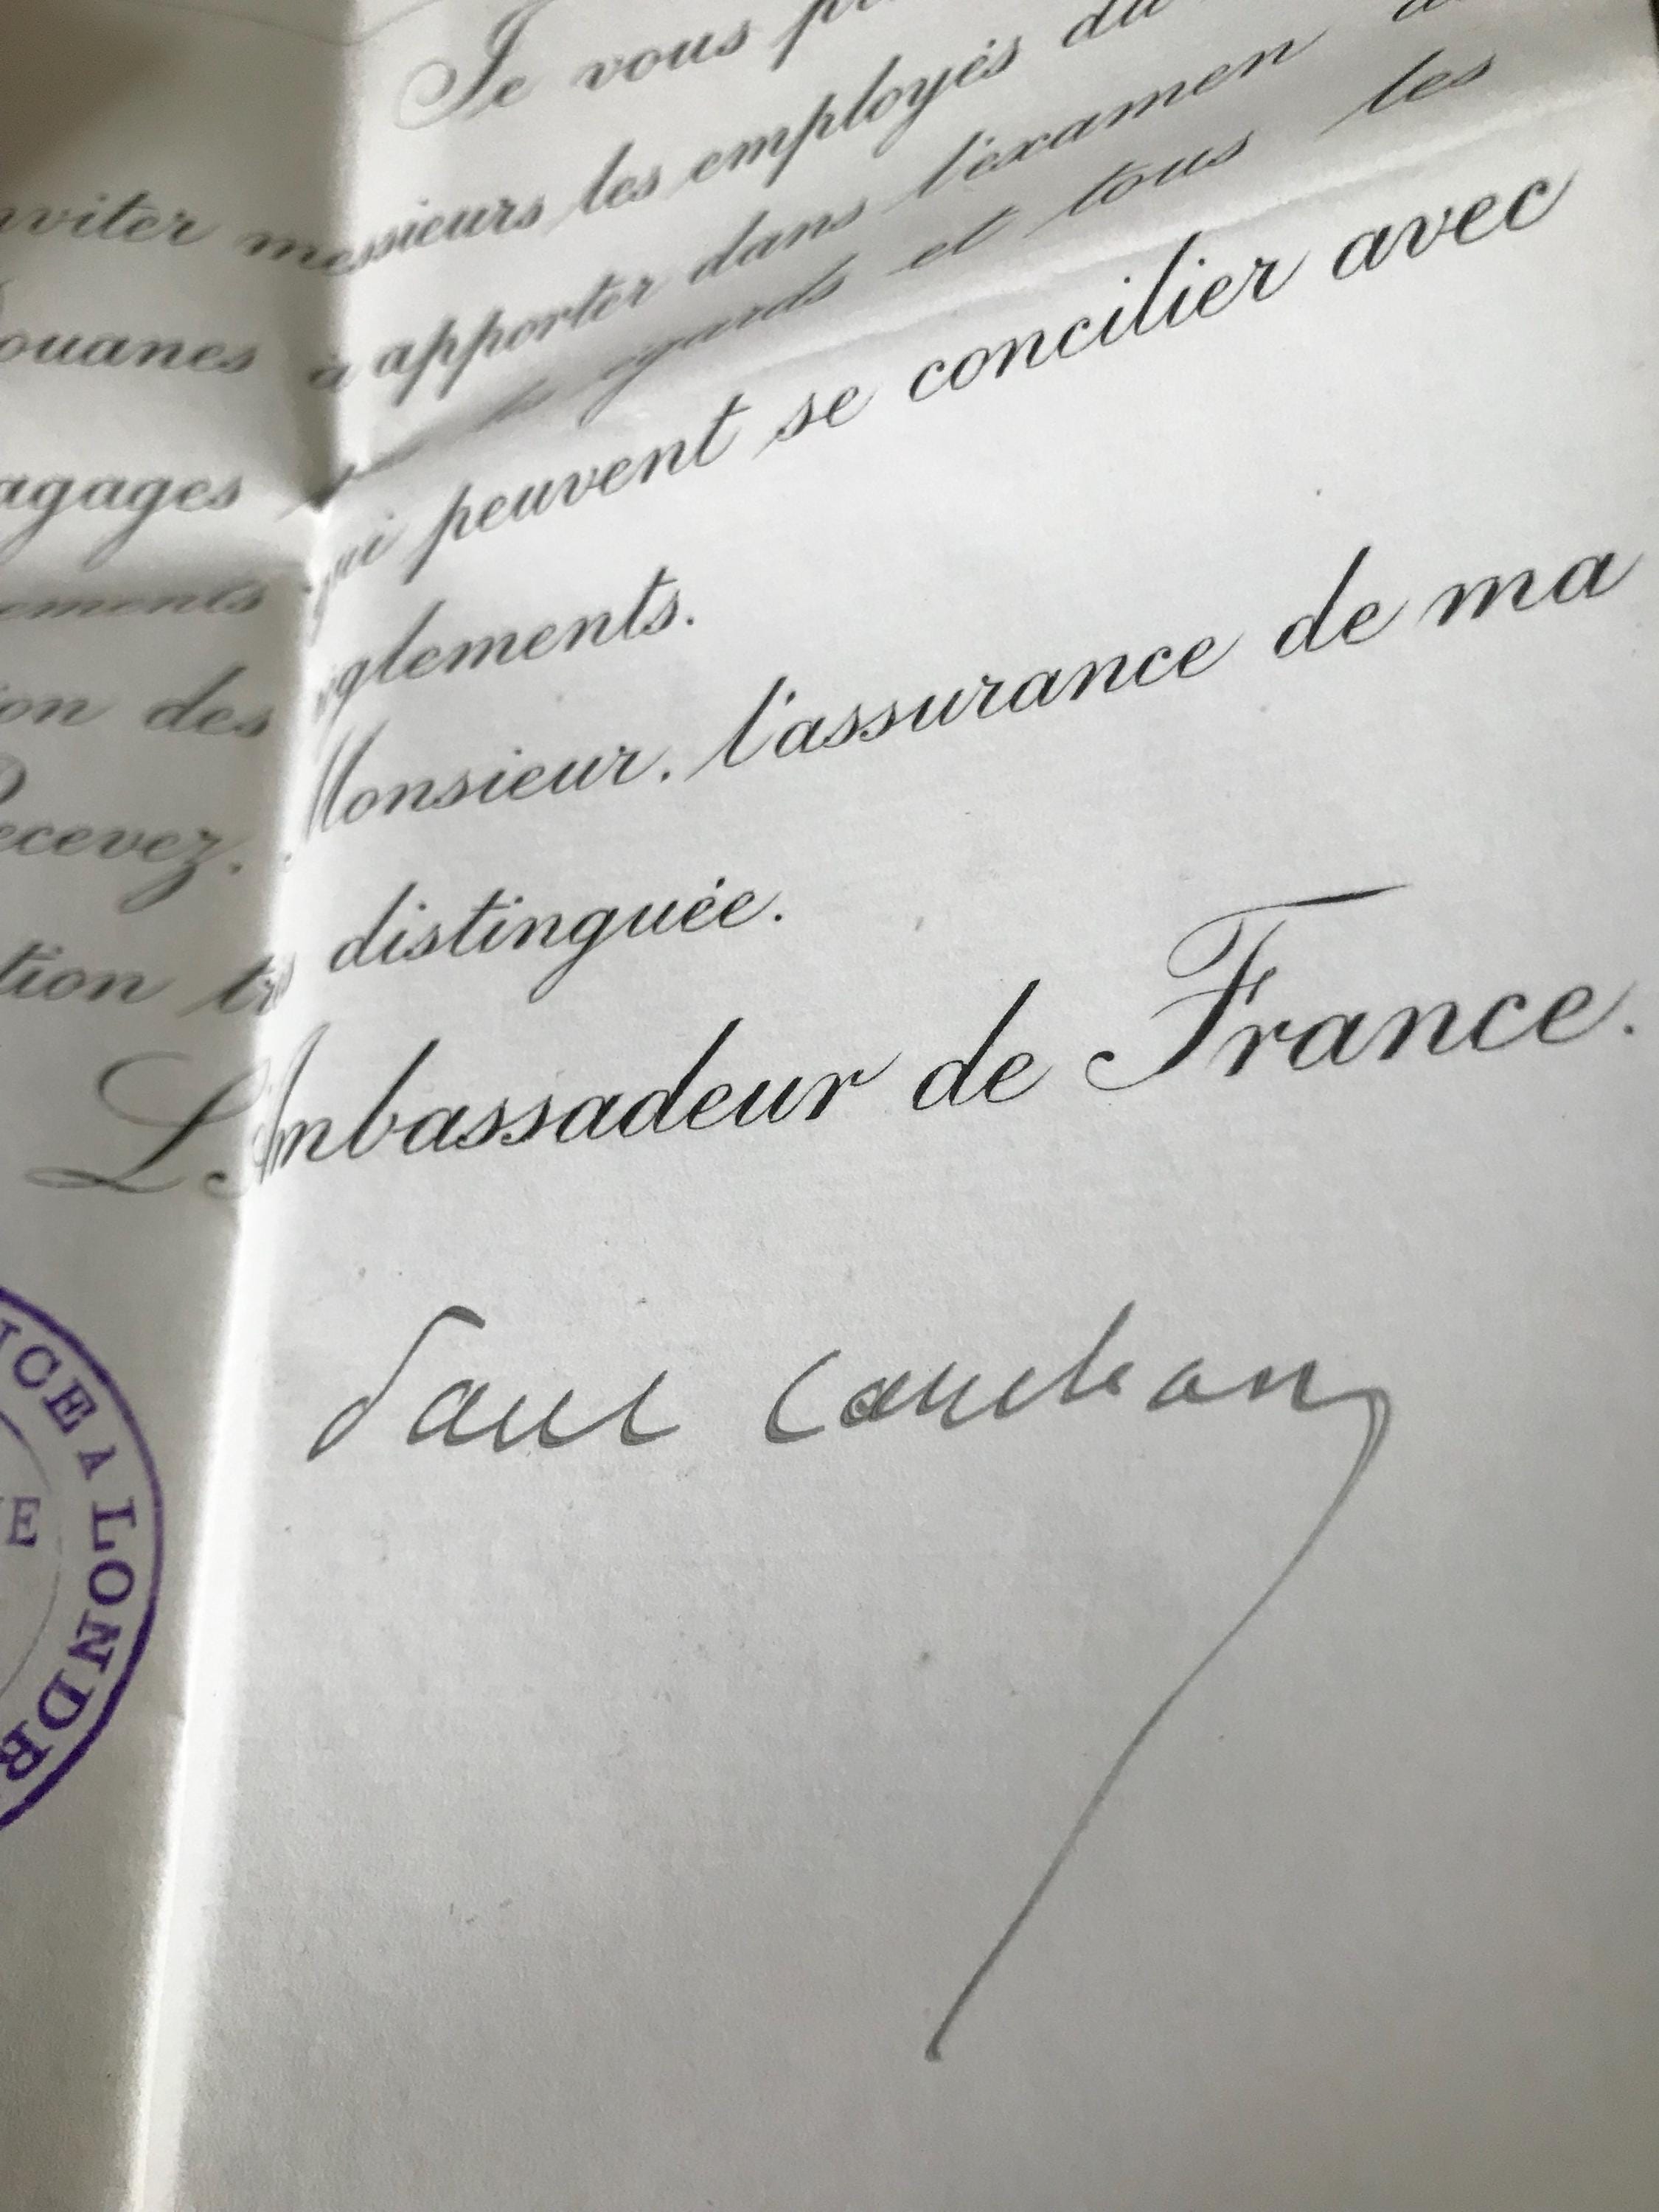 Je vous
nviter messieurs les employés du
Douanes à apporter dans l'examen
agages les égards et tous les
ements qui peuvent se concilier avec
ion des règlements.
Recevez, Monsieur, l'assurance de ma
tion très distinguée.
L'Ambassadeur de France.
Paul Cambon
ICE A LONDR
E